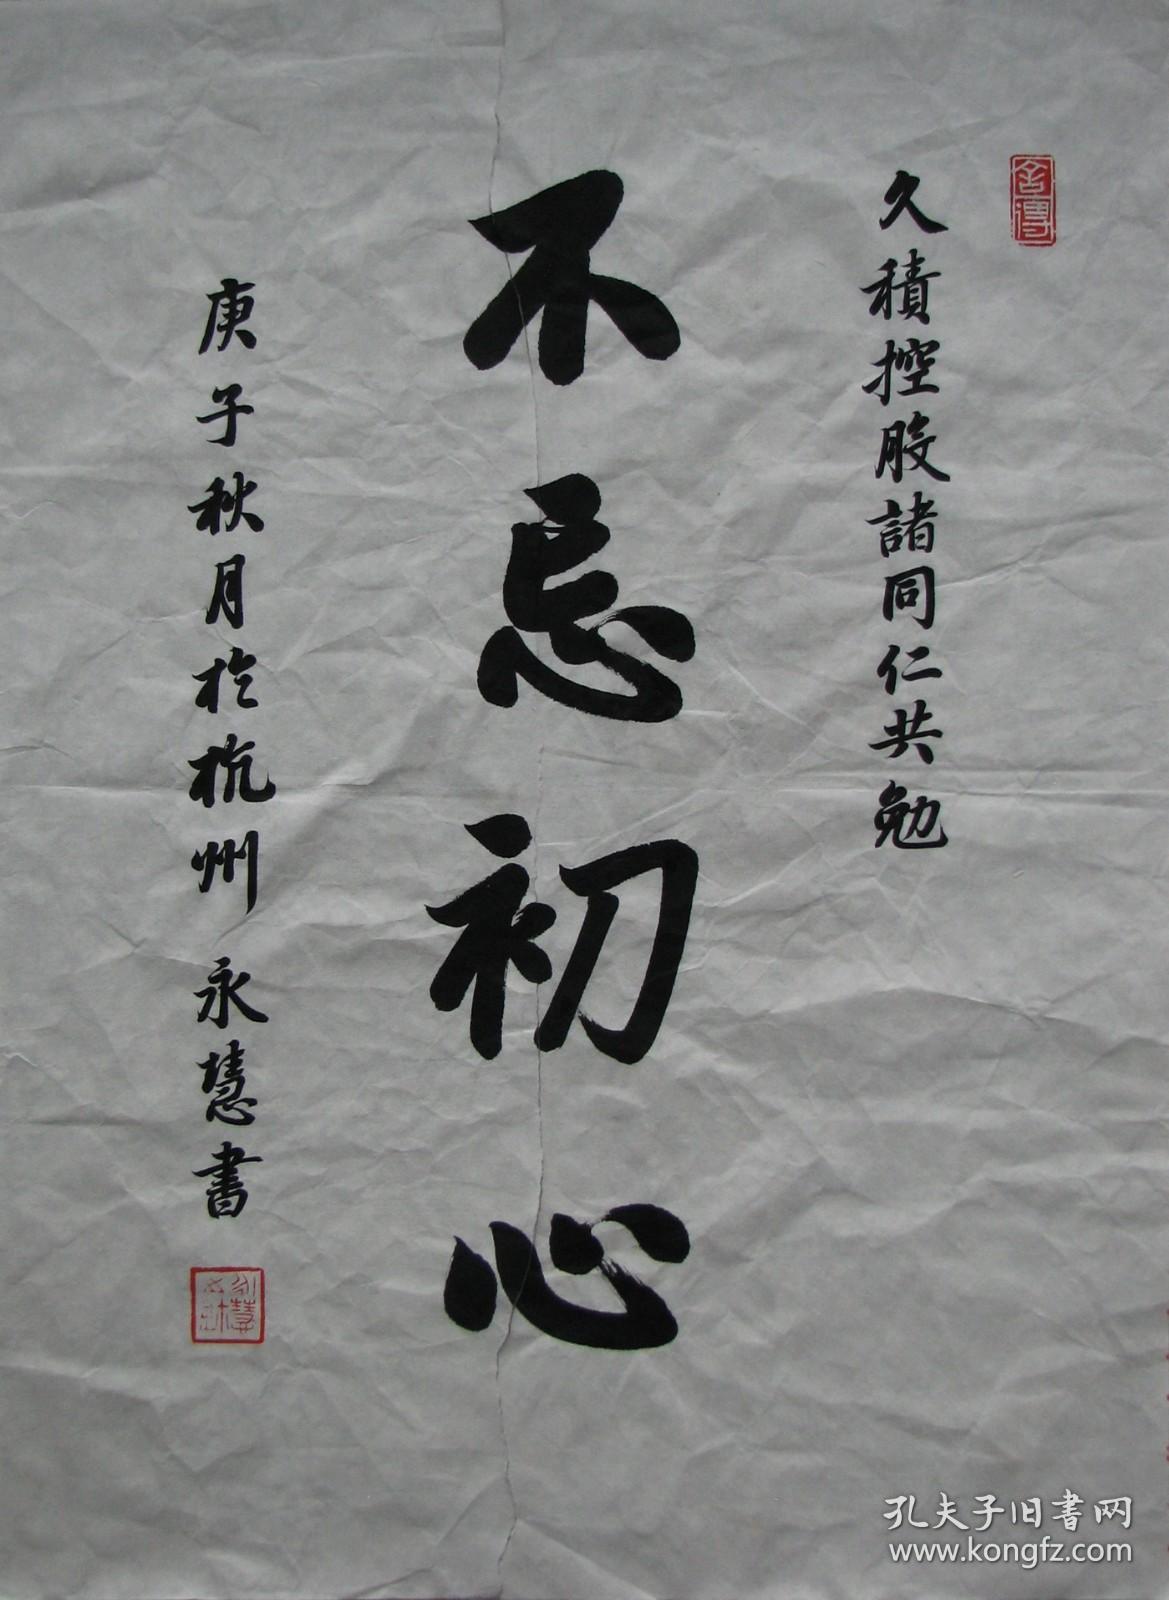 久積控股諸同仁共勉
不忘初心
庚子秋月於杭州 永慧書
孔夫子旧书网
www.kongfz.com